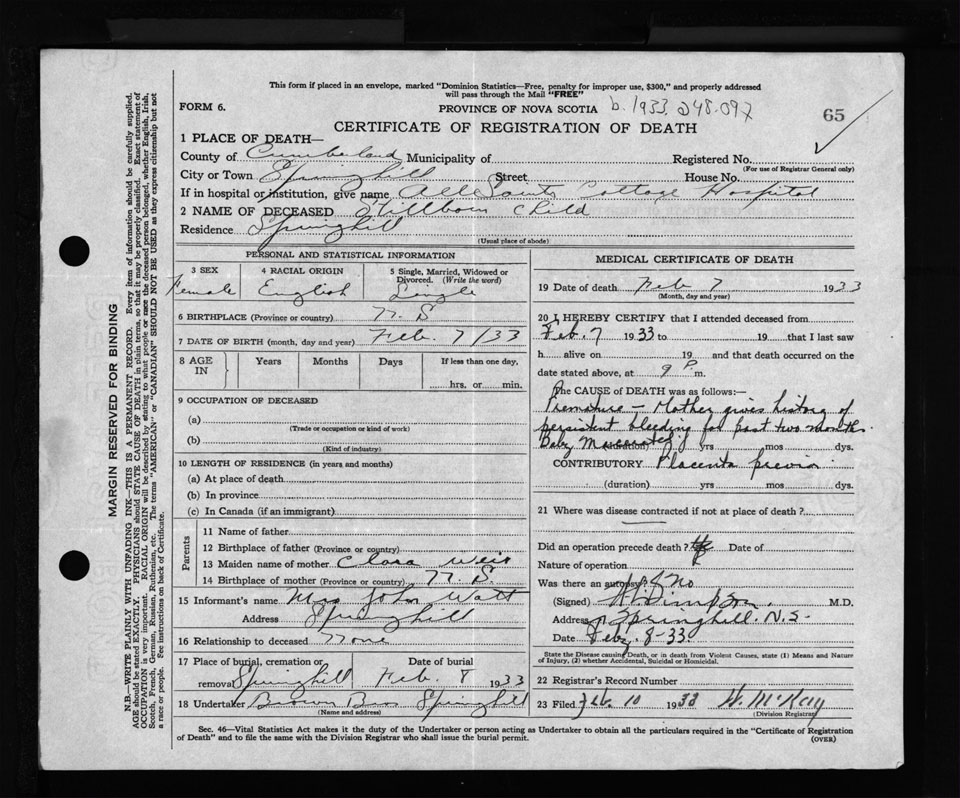 This form if placed in an envelope, marked "Dominion Statistics—Free, penalty for improper use, $300," and properly addressed
will pass through the Mail "FREE"
FORM 6.
PROVINCE OF NOVA SCOTIA
b. 1933
65
CERTIFICATE OF REGISTRATION OF DEATH
1 PLACE OF DEATH—
County of Cumberland Municipality of Registered No.
(For use of Registrar General only)
City or Town Springhill Street House No.
If in hospital or institution, give name All Saints Cottage Hospital
2 NAME OF DECEASED Stillborn Child
Residence Springhill
(Usual place of abode)
PERSONAL AND STATISTICAL INFORMATION
3 SEX 4 RACIAL ORIGIN 5 Single, Married, Widowed or
Divorced. (Write the word)
Female English Single
6 BIRTHPLACE (Province or country) N.S
7 DATE OF BIRTH (month, day and year) Feb. 7/33
8 AGE IN Years Months Days If less than one day,
hrs. or min.
9 OCCUPATION OF DECEASED
(a)
(Trade or occupation or kind of work)
(b)
(Kind of industry)
10 LENGTH OF RESIDENCE (in years and months)
(a) At place of death
(b) In province
(c) In Canada (if an immigrant)
Parents
11 Name of father
12 Birthplace of father (Province or country)
13 Maiden name of mother Clara Weir
14 Birthplace of mother (Province or country) N.S.
15 Informant's name Mrs John Watt
Address Springhill
16 Relationship to deceased None
17 Place of burial, cremation or Date of burial
removal Springhill Feb. 8 1933
18 Undertaker Brown Bros Springhill
(Name and address)
MEDICAL CERTIFICATE OF DEATH
19 Date of death Feb 7 1933
(Month, day and year)
20 I HEREBY CERTIFY that I attended deceased from
Feb. 7 1933 to 19 that I last saw
h alive on 19 and that death occurred on the
date stated above, at 9 P. m.
The CAUSE of DEATH was as follows:—
Premature - Mother gives history of
persistent bleeding for past two months.
Baby Macerated yrs mos dys.
CONTRIBUTORY Placenta previa
(duration) yrs mos dys.
21 Where was disease contracted if not at place of death?
Did an operation precede death? Date of
Nature of operation
Was there an autopsy? no
(Signed) M.D.
Address Springhill. N.S-
Date Feby. 8-33.
State the Disease causing Death, or in death from Violent Causes, state (1) Means and Nature
of Injury, (2) whether Accidental, Suicidal or Homicidal.
22 Registrar's Record Number
23 Filed Feb. 10 1933 W. McKay
(Division Registrar)
Sec. 46—Vital Statistics Act makes it the duty of the Undertaker or person acting as Undertaker to obtain all the particulars required in the "Certificate of Registration
of Death" and to file the same with the Division Registrar who shall issue the burial permit.
(OVER)
MARGIN RESERVED FOR BINDING
N.B.—WRITE PLAINLY WITH UNFADING INK—THIS IS A PERMANENT RECORD. Every item of information should be carefully supplied.
AGE should be stated EXACTLY. PHYSICIANS should STATE CAUSE OF DEATH in plain terms, so that it may be properly classified. Exact statement of
OCCUPATION is very important. RACIAL ORIGIN will be described by stating to what people or race the deceased person belonged, whether English, Irish,
Scotch, French, German, Russian, Ruthenian, etc. The terms "AMERICAN" or "CANADIAN" SHOULD NOT BE USED as they express citizenship but not
a race or people. Fee instructions on back of Certificate.